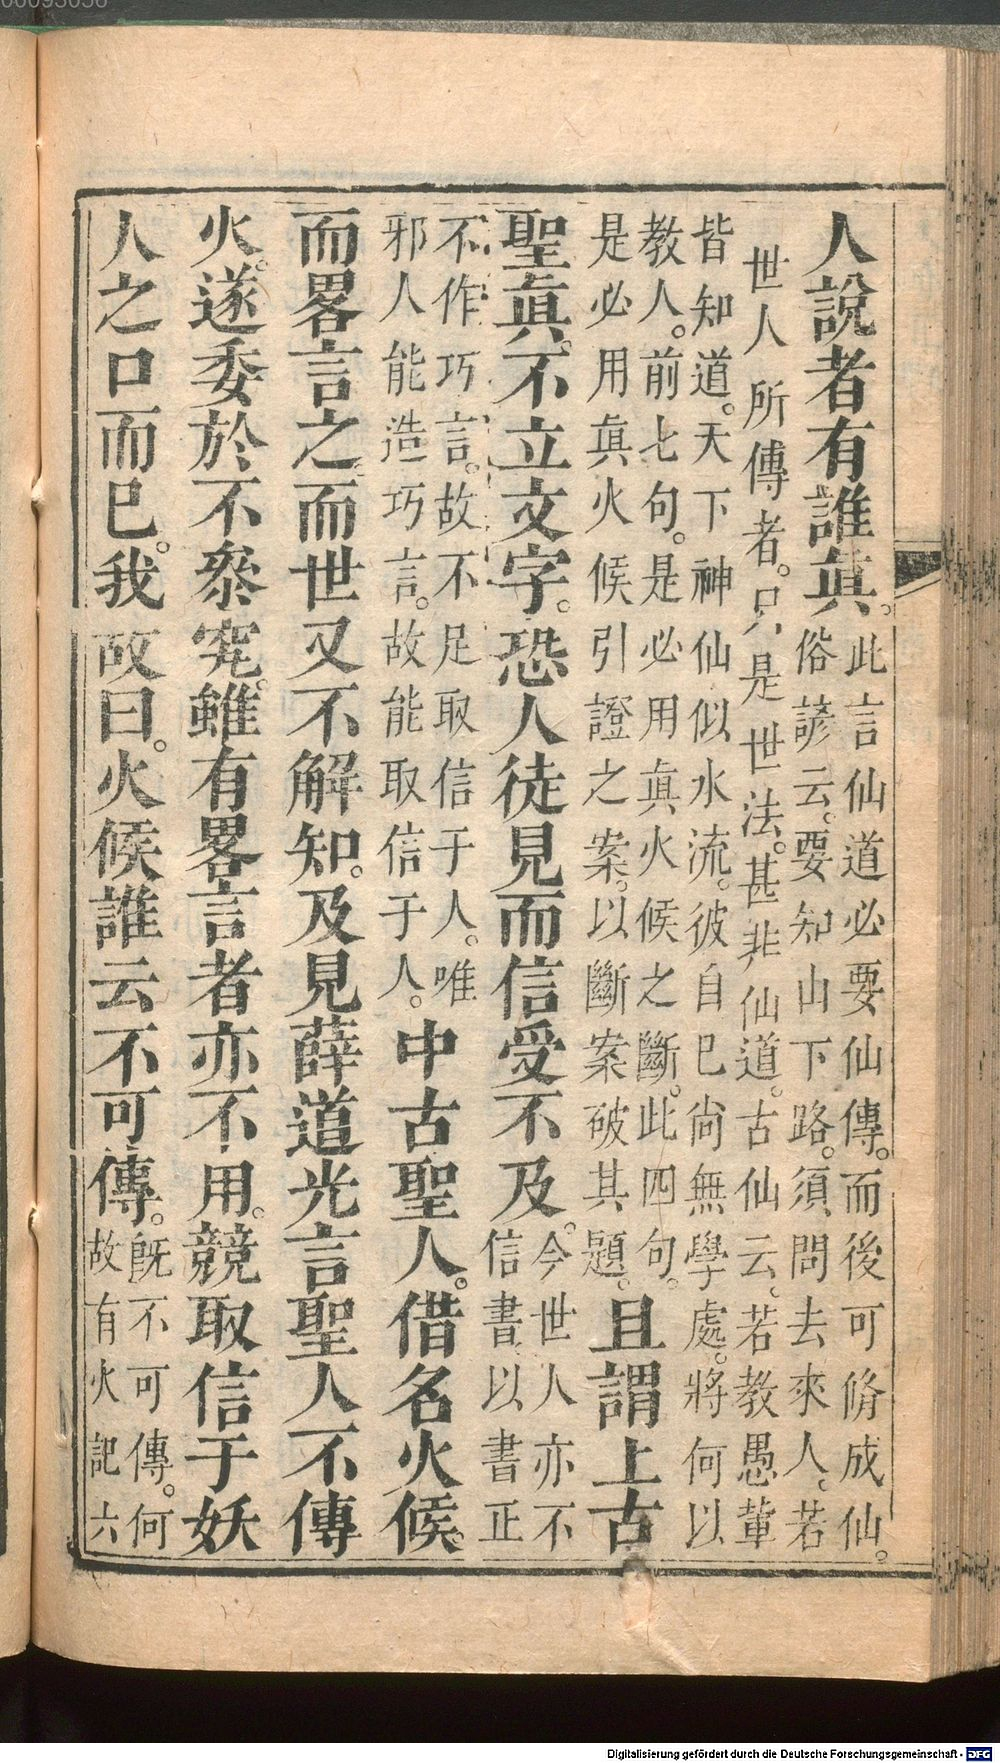 人說者有誰眞。
此言仙道必要仙傳。而後可脩成仙。
俗諺云。要知山下路。須問去來人。若
世人所傳者。只是世法。甚非仙道。古仙云。若教愚輩
皆知道。天下神仙似水流。彼自已尙無學處。將何以
教人。前七句。是必用眞火候之斷。此四句。
是必用眞火候引證之案。以斷案破其題。
且謂上古
聖眞。不立文字。恐人徒見而信受不及。
今世人亦不
信書。以書正
不作巧言。故不足取信于人。唯
邪人能造巧言。故能取信于人。
中古聖人。借名火候。
而畧言之。而世又不解知。及見薛道光言聖人不傳
火。遂委於不叅究。雖有畧言者亦不用。競取信于妖
人之口而已。我故曰。火候誰云不可傳。
旣不可傳。何
故有火記六
Digitalisierung gefördert durch die Deutsche Forschungsgemeinschaft - DFG